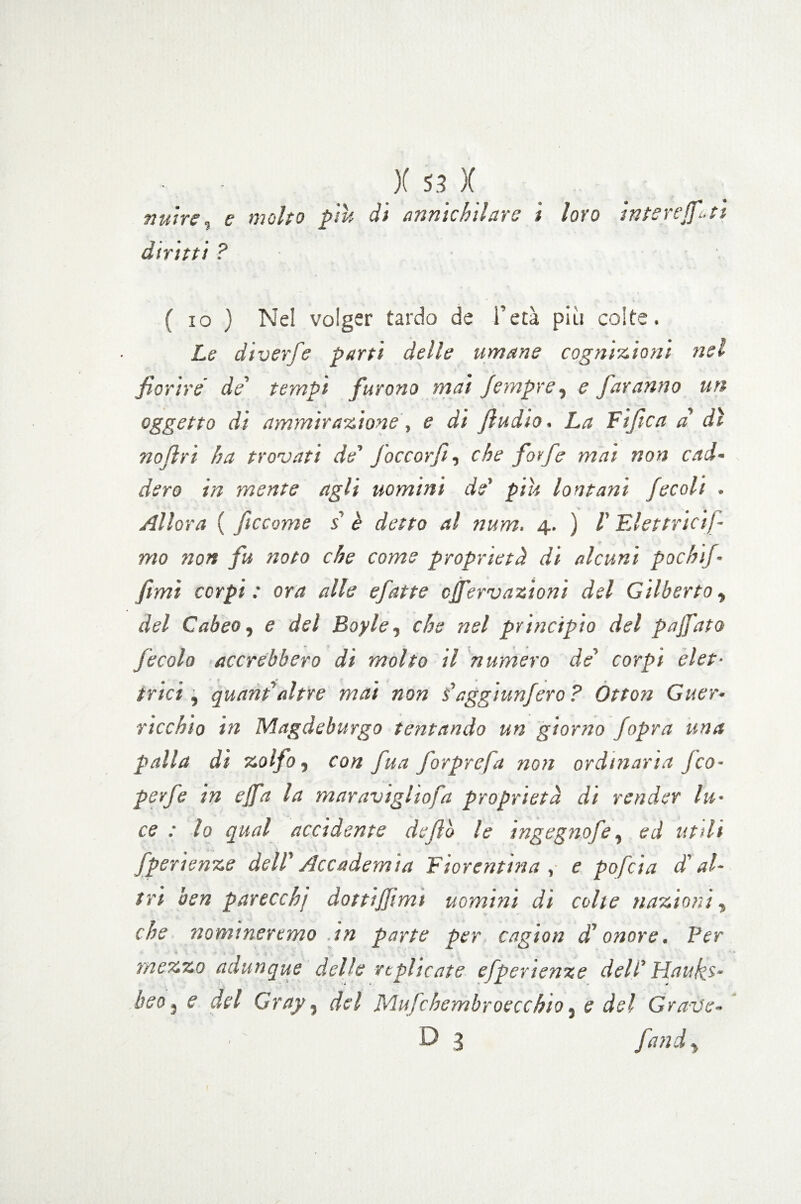 )( 53 )(
nuire, e molto più di annichilare i loro intereſſati
diritti ?
( 10 ) Nel volger tardo de l'età più colte.
Le diverſe parti delle umane cognizioni nel
fiorire de' tempi furono mai ſempre, e ſaranno un
oggetto di ammirazione, e di ſtudio. La Fiſica a' dì
noſtri ha trovati de' ſoccorſi, che forſe mai non cad-
dero in mente agli uomini de' più lontani ſecoli .
Allora ( ſiccome s' è detto al num. 4. ) l' Elettriciſ-
mo non fu noto che come proprietà di alcuni pochiſ-
ſimi corpi : ora alle eſatte oſſervazioni del Gilberto,
del Cabeo, e del Boyle, che nel principio del paſſato
ſecolo accrebbero di molto il numero de' corpi elet-
trici , quant'altre mai non s'aggiunſero ? Otton Guer-
ricchio in Magdeburgo tentando un giorno ſopra una
palla di zolfo, con ſua ſorpreſa non ordinaria ſco-
perſe in eſſa la maraviglioſa proprietà di render lu-
ce : lo qual accidente deſtò le ingegnoſe, ed utili
ſperienze dell' Accademia Fiorentina , e poſcia d' al-
tri ben parecchj dottiſſimi uomini di colte nazioni,
che nomineremo in parte per cagion d' onore. Per
mezzo adunque delle replicate eſperienze dell' Hauks-
beo, e del Gray, del Muſchembroecchio, e del Grave-
D 3 ſand,